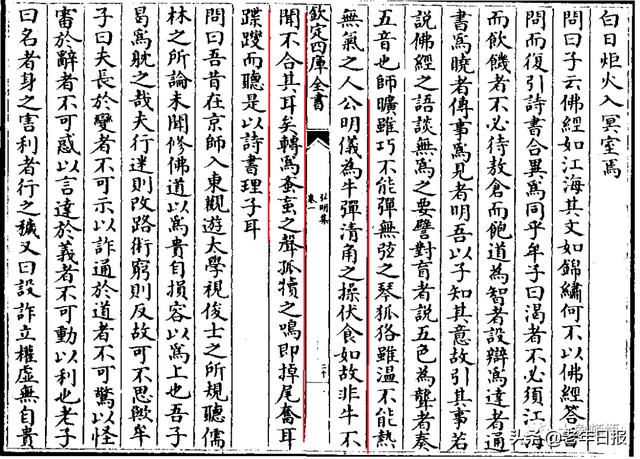 白日炬火入冥室焉
問曰子云佛經如江海其文如錦繡何不以佛經答吾
問而復引詩書合異為同乎牟子曰渴者不必須江海
而飲饑者不必待敖倉而飽道為智者設辯為達者通
書為曉者傳事為見者明吾以子知其意故引其事若
說佛經之語談無為之要譬對盲者說五色為聾者奏
五音也師曠雖巧不能彈無弦之琴狐狢雖温不能熱
無氣之人公明儀為牛彈清角之操伏食如故非牛不
欽定四庫全書
弘明集
卷一
二十
聞不合其耳矣轉為蚉䖟之聲孤犢之鳴即掉尾奮耳
蹀躞而聽是以詩書理子耳
問曰吾昔在京師入東觀遊太學視俊士之所規聽儒
林之所論未聞修佛道以為貴自損容以為上也吾子
曷為躭之哉夫行迷則改路術窮則反故可不思歟牟
子曰夫長於變者不可示以詐通於道者不可驚以怪
審於辭者不可惑以言達於義者不可動以利也老子
曰名者身之害利者行之穢又曰設詐立權虛無自貴
头条@老年日报